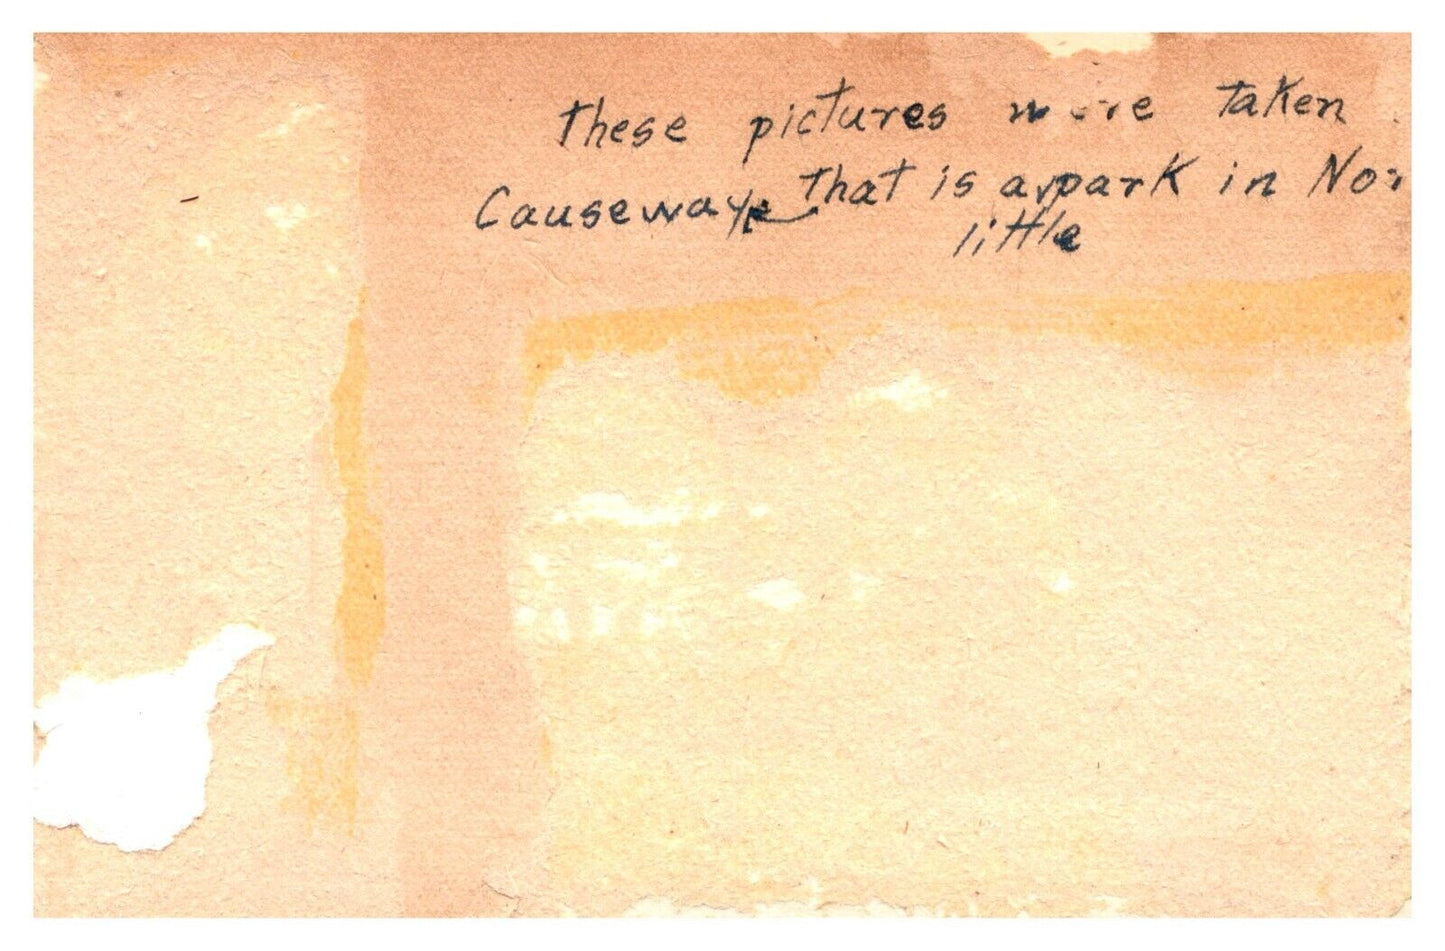 These pictures were taken
Causeway that is a park in No
little